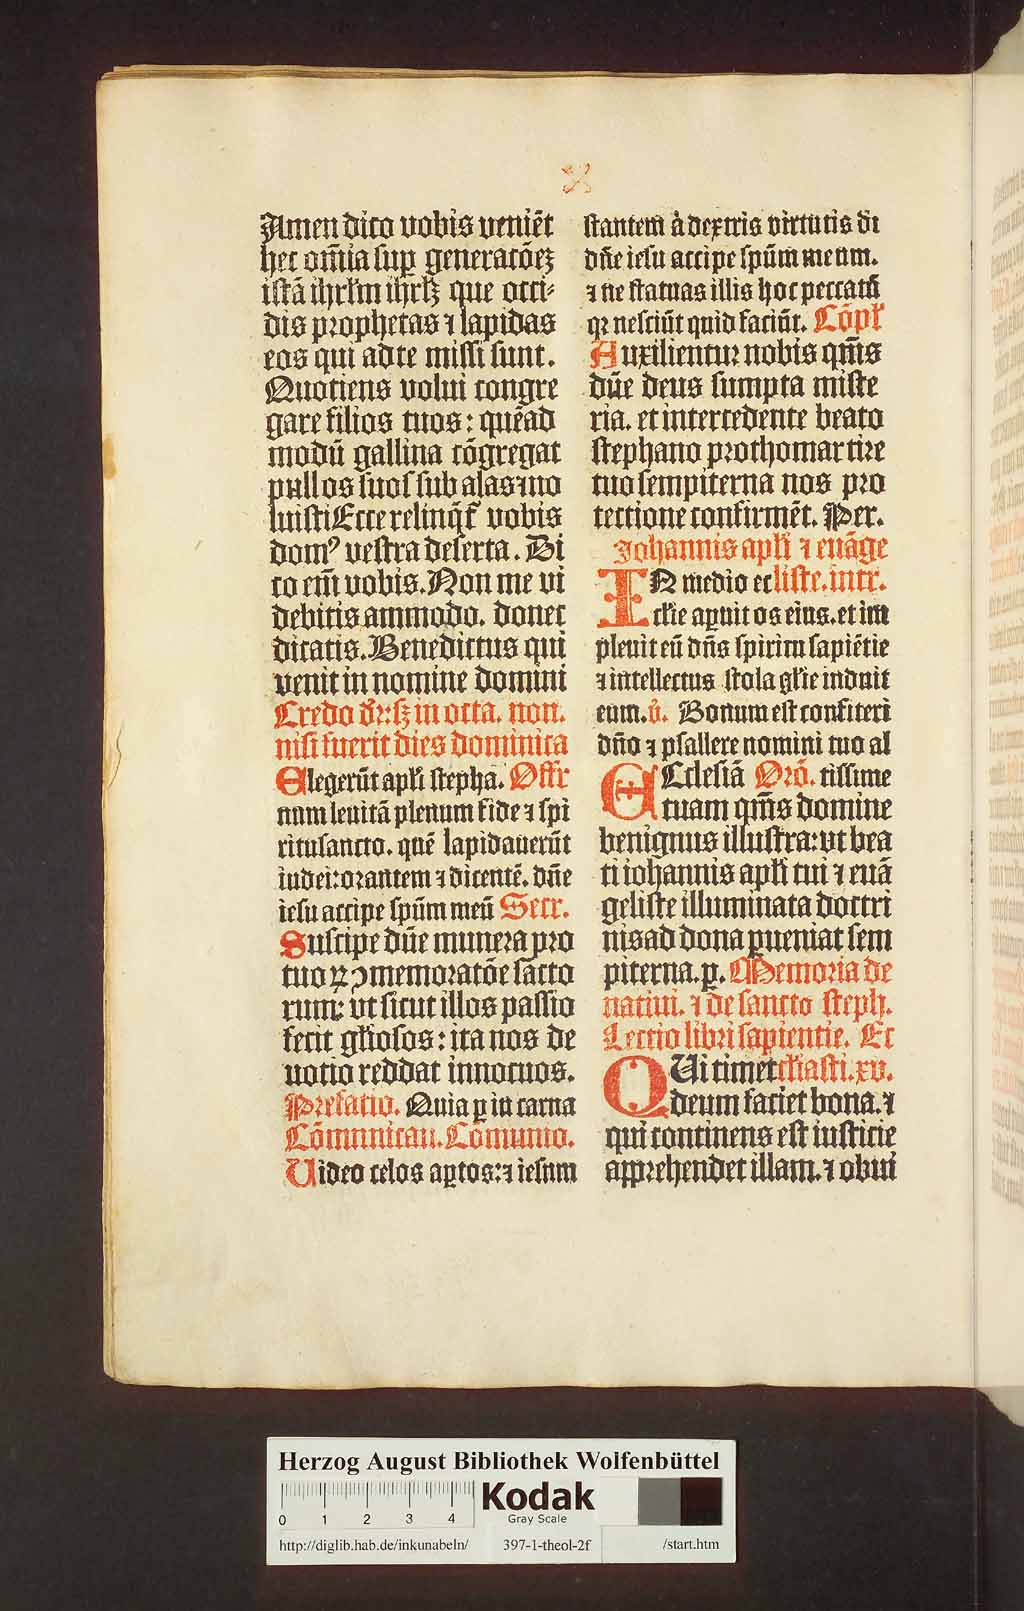 x
Amen dico vobis veniēt
hec om̄ia sup̱ generatōeꝫ
istā ihrl̄m ihrlꝫ que occi-
dis prophetas ⁊ lapidas
eos qui ad te missi sunt.
Quotiens volui congre
gare filios tuos: quēad
modū gallina cōgregat
pullos suos sub alas ⁊ no
luisti Ecce relinq̄t̄ vobis
domꝰ vestra deserta. Di
co em̄ vobis. Non me vi
debitis ammodo. donec
dicatis. Benedictus qui
venit in nomine domini
Credo dr̄: sꝫ in octa. non.
nisi fuerit dies dominica
Elegerūt apl̄i stepha. Offr̄
num levitā plenum fide ⁊ spi
ritusancto. quē lapidaverūt
iudei: orantem ⁊ dicentē. dn̄e
iesu accipe spūm meū Secr.
Suscipe dn̄e munera pro
tuoꝝ ꝯmemoratōe sācto
rum: ut sicut illos passio
fecit gl̄iosos: ita nos de
uotio reddat innocuos.
Prefatio. Quia p̱ in carna
Cōmunicau. Comunio.
Video celos ap̱tos: ⁊ iesum
stantem à dextris virtutis di
dn̄e iesu accipe spūm meum.
⁊ ne statuas illis hoc peccatū
qꝛ nesciūt quid faciūt. Cōpl̄
Auxilientur nobis qm̄s
dn̄e deus sumpta miste
ria. et intercedente beato
stephano prothomartire
tuo sempiterna nos pro
tectione confirmēt. Per.
Johannis apl̄i ⁊ euāge
IN medio ec liste. intr.
cl̄ie ap̱uit os eius. et im
pleuit eū dn̄s spiritu sapiētie
⁊ intellectus stola gl̄ie induit
eum. v̄. Bonum est confiteri
dn̄o ⁊ psallere nomini tuo al
ECclesiā Orō. tissime
tuam qm̄s domine
benignus illustra: ut bea
ti iohannis apl̄i tui ⁊ euā
geliste illuminata doctri
nis ad dona p̱ueniat sem
piterna. p̱. Memoria de
natiui. ⁊ de sancto steph.
Lectio libri sapientie. Ec
QUi timet cl̄iasti. xv.
deum faciet bona. ⁊
qui continens est iusticie
apprehendet illam. ⁊ obui
Herzog August Bibliothek Wolfenbüttel
0 1 2 3 4
Kodak
Gray Scale
http://diglib.hab.de/inkunabeln/ 397-1-theol-2f /start.htm